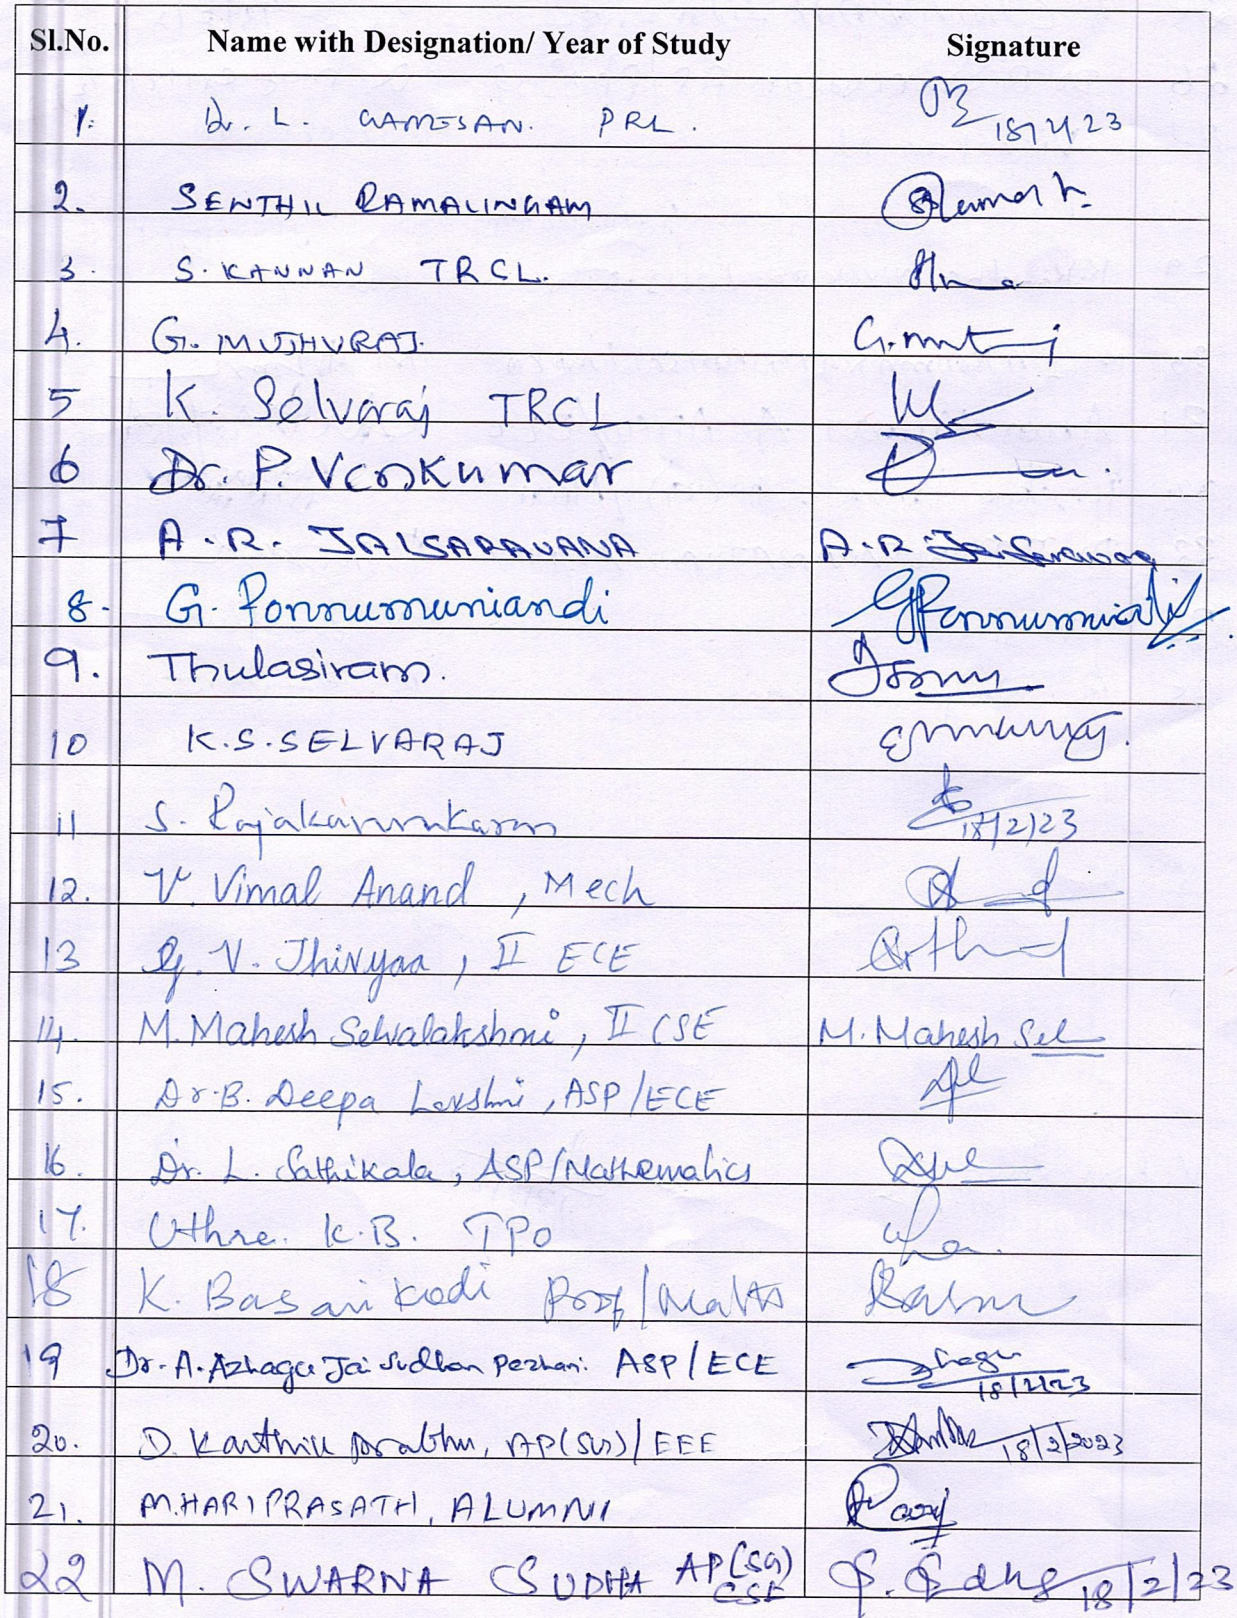 Sl.No. Name with Designation/ Year of Study Signature
1. Dr. L. GANESAN. PRL. 18/2/23
2. SENTHIL RAMALINGAM
3. S. KANNAN TRCL.
4. G. MUTHURAJ. G. mut j
5 K. Selvaraj TRCL
6 Dr. P. Venkumar
7 A.R. JAISARAVANA A.R. JaiSaravana
8. G. Ponnumuniandi GPonnumuniandi
9. Thulasiram.
10 K.S.SELVARAJ
11 S. Rajakarunakaran 18/2/23
12. V. Vimal Anand, Mech
13 G.V. Thivyaa, II ECE
14. M. Mahesh Selvalakshmi, II CSE M. Mahesh Sel
15. Dr. B. Deepa Lakshmi, ASP/ECE
16. Dr. L. Sathikala, ASP/Mathematics
17. Uthra. K.B. TPO
18 K. Basari Kodi Prof/Maths
19 Dr. A. Azhagu Jai Sudhan Pazhani. ASP/ECE 18/2/23
20. D. Karthik Prabhu, AP(SG)/EEE 18/2/2023
21. M. HARIPRASATH, ALUMNI
22 M. SWARNA SUDHA AP(SG) 18/2/23
CSE